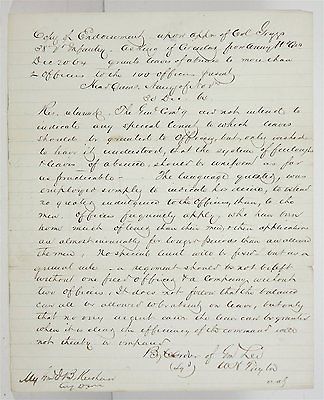 Copy of Endorsement upon appn of Col Griggs
38" Va Infantry. Asking if Circular from Army Hd Qrs
Dec 20 64 grants leaves of absence to more than
2 officers to the 100 officers present
Head Quars. Army of No Va
30 Dec 64
The Genl Comdg did not intend to
indicate any special limit to which leaves
should be granted to officers, but only wished
to have it understood, that the system of furloughs
& leaves of absence, should be uniform as far
as practicable - The language quoted, was
employed simply to indicate his desire, to extend
no greater indulgence to the officers, than, to the
men. Officers frequently apply, who have been
home much of later than their men, & their applications
are almost invariably for longer periods than are allowed
the men, No special limit will be fixed but as a
general rule - a regiment should not be left
without one field officer, & a Company without
two officers. It does not follow that the balance
can all be allowed to be absent on leave, but only
that no very urgent cases the leave can be granted
when it is clear the efficiency of the command will
not thereby be impaired
By order of Gen Lee
(Sgd) W H Taylor
A A G